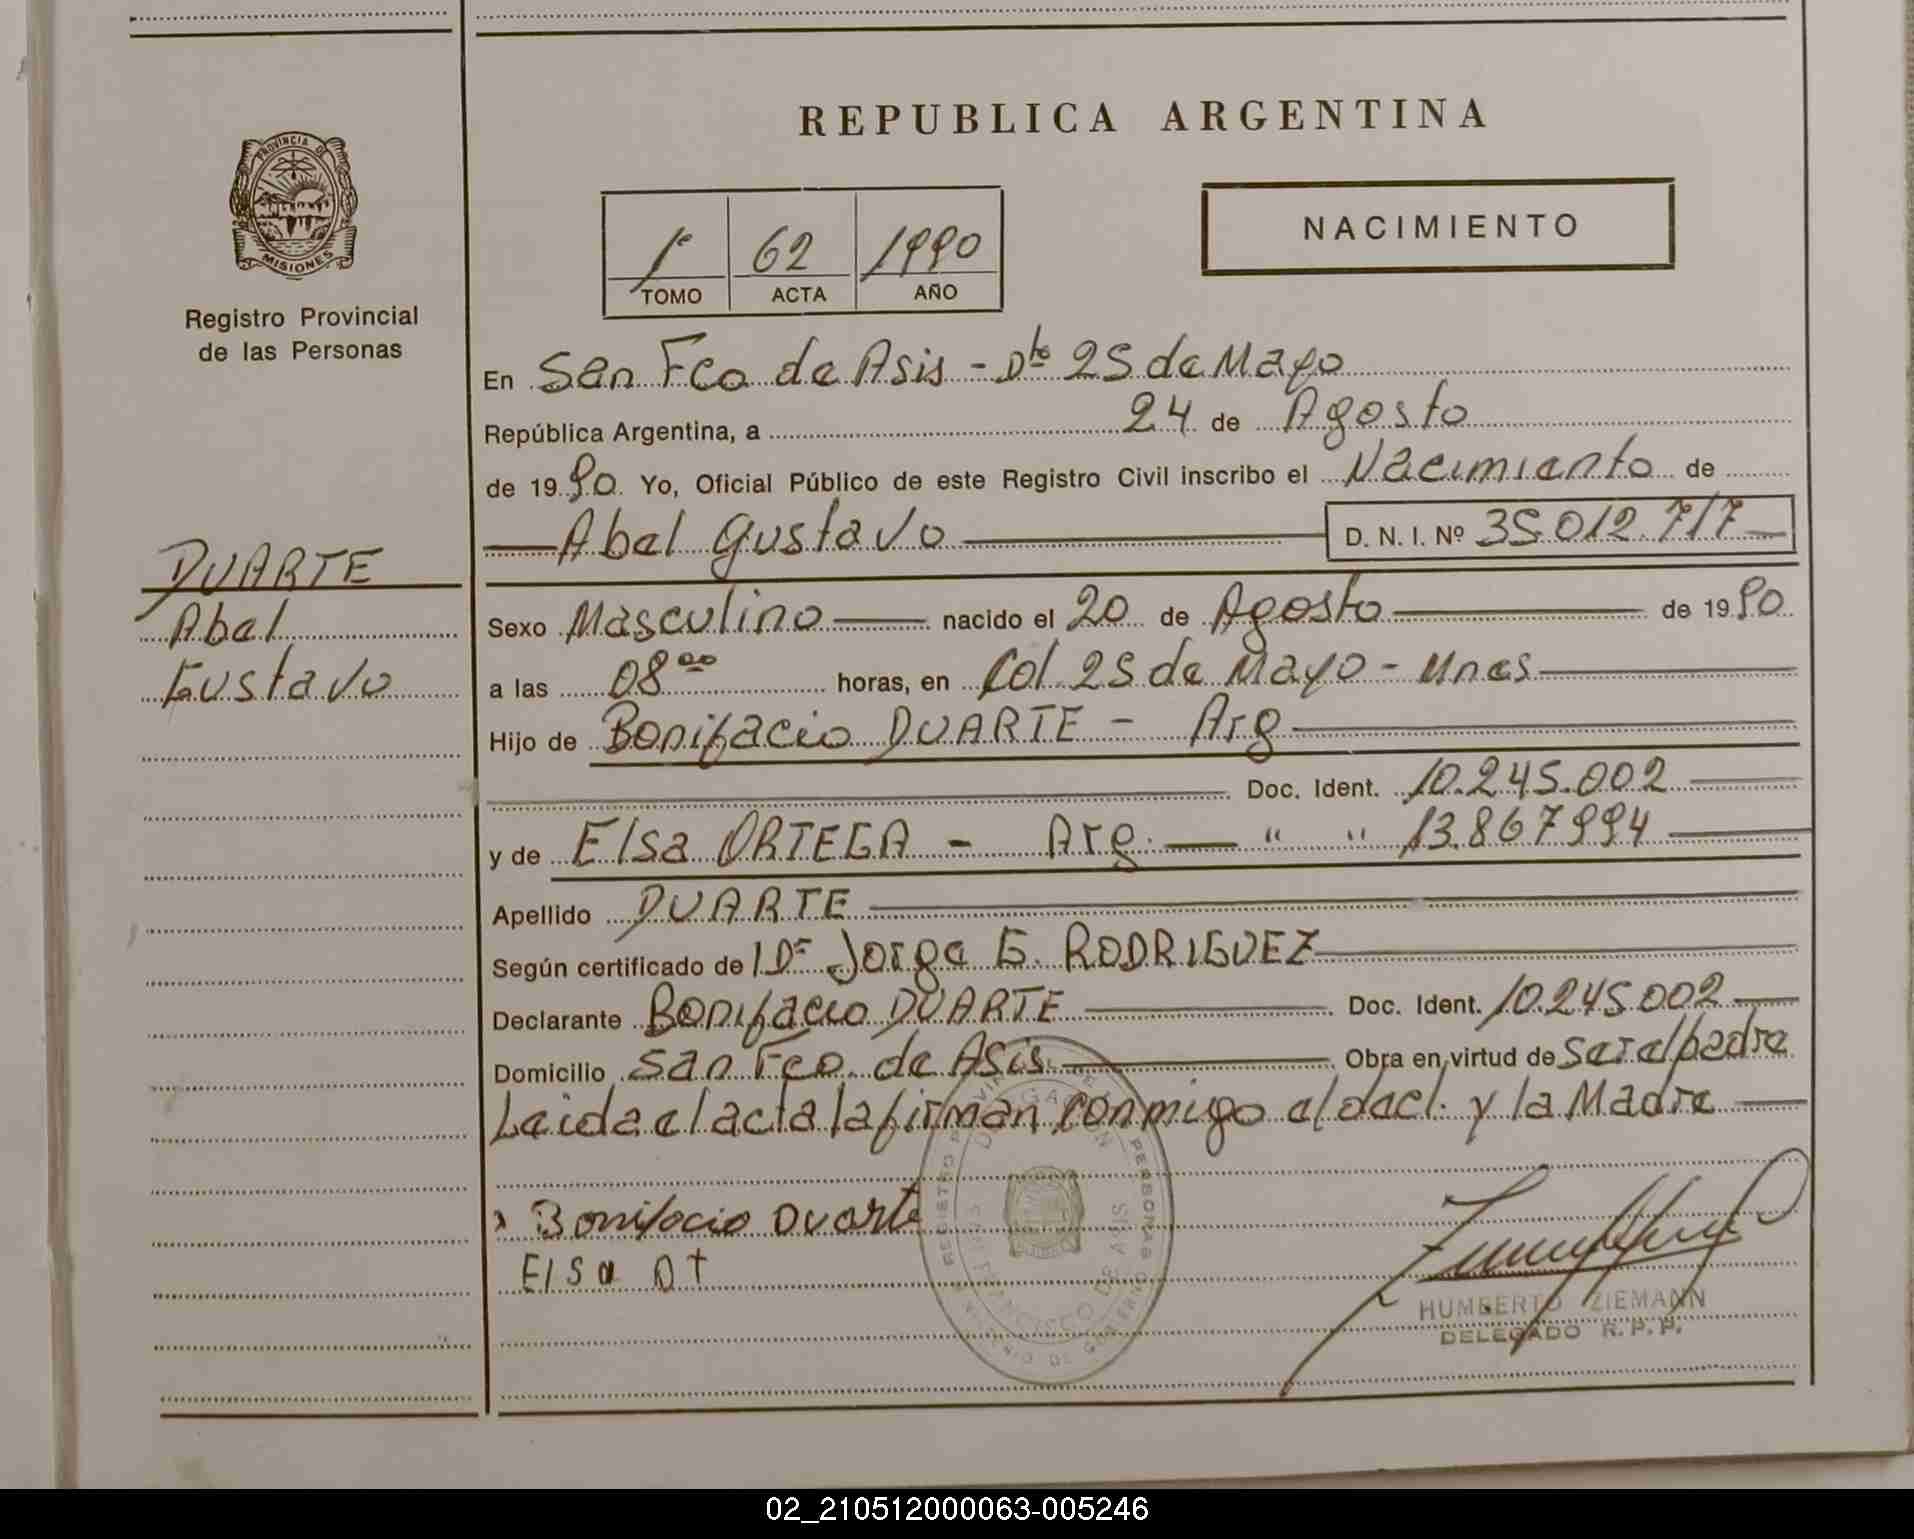 REPUBLICA ARGENTINA
PROVINCIA DE
MISIONES
Registro Provincial
de las Personas
1º 62 1990
TOMO ACTA AÑO
NACIMIENTO
En San Fco de Asis - Dto 25 de Mayo
República Argentina, a 24 de Agosto
de 1990 Yo, Oficial Público de este Registro Civil inscribo el Nacimiento de
Abel Gustavo D. N. I. Nº 35.012.717
DUARTE
Abel
Gustavo
Sexo Masculino nacido el 20 de Agosto de 1990
a las 08 00 horas, en Col. 25 de Mayo - Mnes
Hijo de Bonifacio DUARTE - Arg
Doc. Ident. 10.245.002
y de Elsa ORTEGA - Arg. " " 13.867994
Apellido DUARTE
Según certificado de Dr Jorge G. RODRIGUEZ
Declarante Bonifacio DUARTE Doc. Ident. 10.245.002
Domicilio San Fco. de Asis Obra en virtud de ser el padre
Leida el acta la firman conmigo el decl. y la Madre
Bonifacio Duarte
Elsa Dt
HUMBERTO ZIEMANN
DELEGADO R. P. P.
02_210512000063-005246